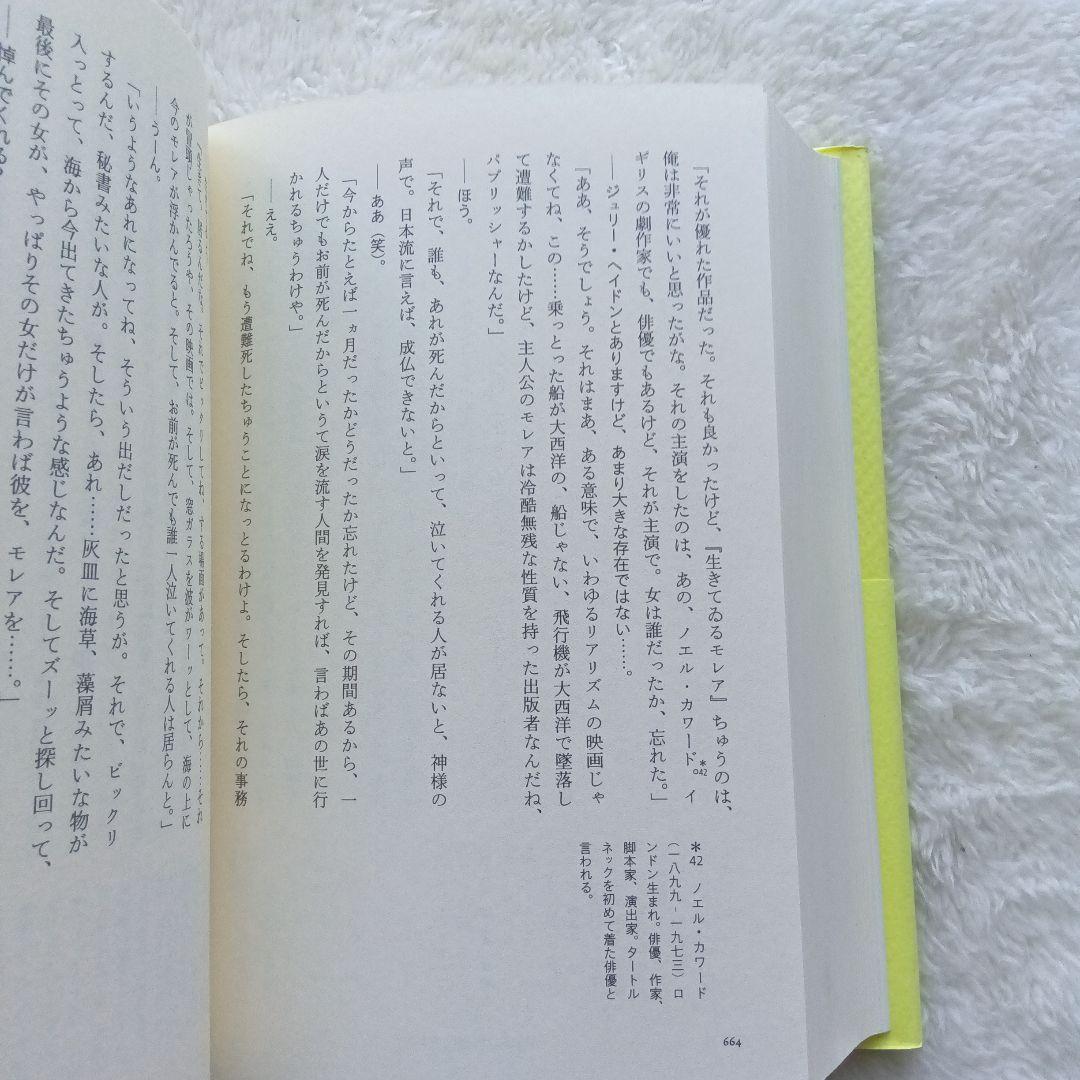 『それが優れた作品だった。それも良かったけど、『生きてゐるモレア』ちゅうのは、
俺は非常にいいと思ったがな。それの主演をしたのは、あの、ノエル・カワード。*42 イ
ギリスの劇作家でも、俳優でもあるけど、それが主演で。女は誰だったか、忘れた。」
――ジュリー・ヘイドンとありますけど、あまり大きな存在ではない……。
『ああ、そうでしょう。それはまあ、ある意味で、いわゆるリアリズムの映画じゃ
なくてね、この……乗っとった船が大西洋の、船じゃない、飛行機が大西洋で墜落し
て遭難するかしたけど、主人公のモレアは冷酷無残な性質を持った出版者なんだね、
パブリッシャーなんだ。」
――ほう。
「それで、誰も、あれが死んだからといって、泣いてくれる人が居ないと、神様の
声で。日本流に言えば、成仏できないと。」
――ああ（笑）。
「今からたとえば一ヵ月だったかどうだったか忘れたけど、その期間あるから、一
人だけでもお前が死んだからというて涙を流す人間を発見すれば、言わばあの世に行
かれるちゅうわけや。」
――ええ。
「それでね、もう遭難死したちゅうことになっとるわけよ。そしたら、それの事務
*42 ノエル・カワード
（一八九九‐一九七三）ロ
ンドン生まれ。俳優、作家、
脚本家、演出家。タートル
ネックを初めて着た俳優と
言われる。
664
する場面があって。それから……それ
が冒頭じゃったろうや、その映画では。そして、窓ガラスを彼がワーッとして、海の上に
今のモレアが浮かんでると。そして、お前が死んでも誰一人泣いてくれる人は居らんと。」
――うーん。
「いうようなあれになってね、そういう出だしだったと思うが。それで、ビックリ
するんだ、秘書みたいな人が。そしたら、あれ……灰皿に海草、藻屑みたいな物が
入っとって、海から今出てきたちゅうような感じなんだ。そしてズーッと探し回って、
最後にその女が、やっぱりその女だけが言わば彼を、モレアを……。」
――悼んでくれる？